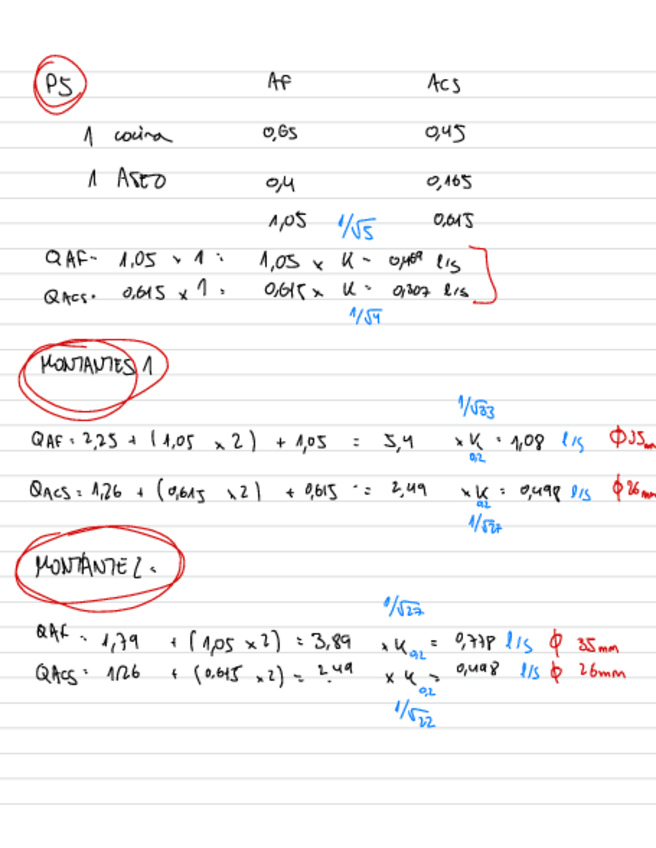 P5 AF ACS
1 cocina 0,65 0,45
1 ASEO 0,4 0,165
1,05 1/√5 0,615
QAF= 1,05 x 1 = 1,05 x K = 0,469 l/s
QACS= 0,615 x 1 = 0,615 x K = 0,307 l/s
1/√4
MONTANTES 1
1/√33
QAF = 2,25 + (1,05 x 2) + 1,05 = 5,4 x K = 1,08 l/s Φ35mm
0,2
QACS = 1,26 + (0,615 x 2) + 0,615 = 2,49 x K = 0,498 l/s Φ26mm
0,2
1/√27
MONTANTE 2.
1/√27
QAF = 1,79 + (1,05 x 2) = 3,89 x K 0,2 = 0,778 l/s Φ 35mm
QACS = 1,26 + (0,615 x 2) = 2,49 x K 0,2 = 0,498 l/s Φ 26mm
1/√22